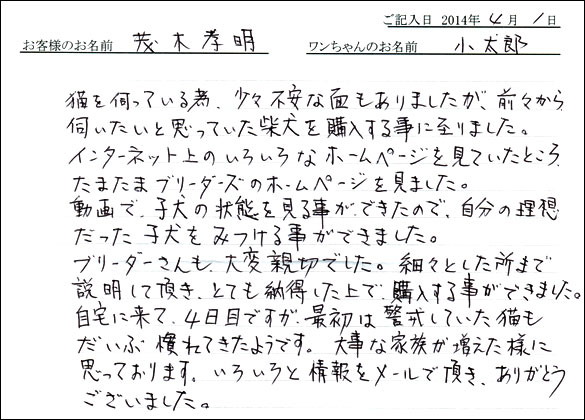 ご記入日 2014年 4月 1日
お客様のお名前 茂木孝明 ワンちゃんのお名前 小太郎
猫を伺っている為、少々不安な面もありましたが、前々から
伺いたいと思っていた柴犬を購入する事に至りました。
インターネット上のいろいろなホームページを見ていたところ
たまたまブリーダーズのホームページを見ました。
動画で、子犬の状態を見る事ができたので、自分の理想
だった子犬をみつける事ができました。
ブリーダーさんも、大変親切でした。細々とした所まで
説明して頂き、とても納得した上で、購入する事ができました。
自宅に来て、4日目ですが、最初は警式していた猫も
だいぶ慣れてきたようです。大事な家族が増えた様に
思っております。いろいろと情報をメールで頂き、ありがとう
ございました。